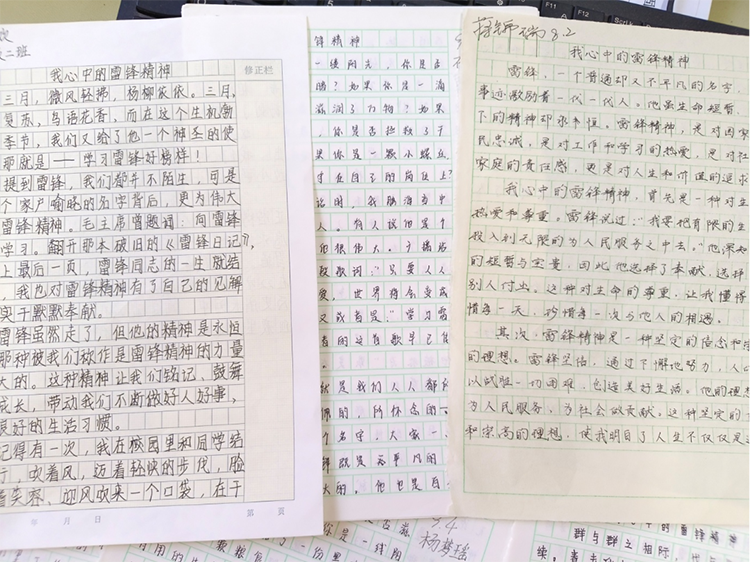 二班
修正栏
我心中的雷锋精神
三月，微风轻拂，杨柳依依。三月，
复苏、鸟语花香，而在这个生机勃
季节，我们又给了他一个神圣的使
那就是——学习雷锋好榜样！
提到雷锋，我们都并不陌生，可是
个家户喻晓的名字背后，更为伟大
雷锋精神。毛主席曾题词：向雷锋
学习。翻开那本破旧的《雷锋日记》，
上最后一页，雷锋同志的一生就结
，我也对雷锋精神有了自己的见解
实干默默奉献。
雷锋虽然走了，但他的精神是永恒
那种被我们称作是雷锋精神的力量
大的。这种精神让我们铭记、鼓舞
成长，带动我们不断做好人好事、
良好的生活习惯。
记得有一次，我在校园里和同学结
行，吹着风，迈着轻快的步伐，脸
着笑容、迎风吹来一个口袋，在于
年 月 日 第 页
锋精神
一缕阳光，你是否
暗？如果你是一滴
滋润了万物？如果
，你是否拯救了于
果你是一颗小螺丝
守在自己的岗位上？
人。有人说他是个
他很伟大。
段歌词：“只要人人
爱，世界将会变成
又或者是：“学习雷
者的这首歌早已
就是我们人人都
个名字，大家一
锋就是无平凡的
大的。他也是自
9.4
杨梦瑶
8.2
我心中的雷锋精神
雷锋，一个普通却又不平凡的名字，
事迹激励着一代一代人。他虽生命短暂，
下的精神却永恒。雷锋精神，是对国家
民忠诚，是对工作和学习的热爱，是对社
家庭的责任感，更是对人生和价值的追求
我心中的雷锋精神，首先是一种对生
热爱和尊重。雷锋说过：“我要把有限的生
投入到无限的为人民服务之中去。”他深知
的短暂与宝贵，因此他选择了奉献，选择
别人付出。这种对生命的尊重，让我懂得
惜每一天，珍惜每一次与他人的相遇。
其次，雷锋精神是一种坚定的信念和
的理想。雷锋坚信，通过不懈地努力，人
以战胜一切困难，创造美好生活。他的理想
为人民服务，为社会做贡献。这种坚定的
和崇高的理想，使我明白了人生不仅仅是
群与群立相际，代与